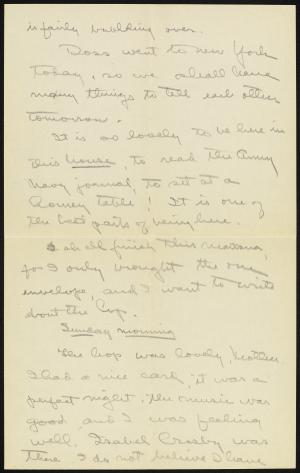 is fairly bubbling over.
Doss went to New York
today, so we shall have
many things to tell each other
tomorrow.
It is so lovely to be here in
this house, to read the Army
Navy Journal, to sit at a
table! It is one of
the best parts of being here.
I shall finish this mañana,
for I only brought the one
envelope, and I want to write
about the hop.
Sunday morning
The hop was lovely, Mother.
I had a nice card, it was a
perfect night, the music was
good, and I was feeling
well. Isabel Crosby was
there. I do not believe I have